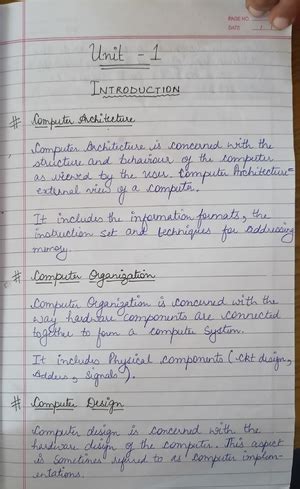 PAGE NO.
DATE
Unit - 1
INTRODUCTION
# Computer Architecture
Computer Architecture is concerned with the
structure and behaviour of the computer
as viewed by the user. Computer Architecture =
external view of a computer.
It includes the information formats, the
instruction set and techniques for addressing
memory.
# Computer Organization
Computer Organization is concerned with the
way hardware components are connected
together to form a computer system.
It includes Physical components (ckt design,
Adders, signals).
# Computer Design
Computer design is concerned with the
hardware design of the computer. This aspect
is sometimes referred to as computer implem-
entations.